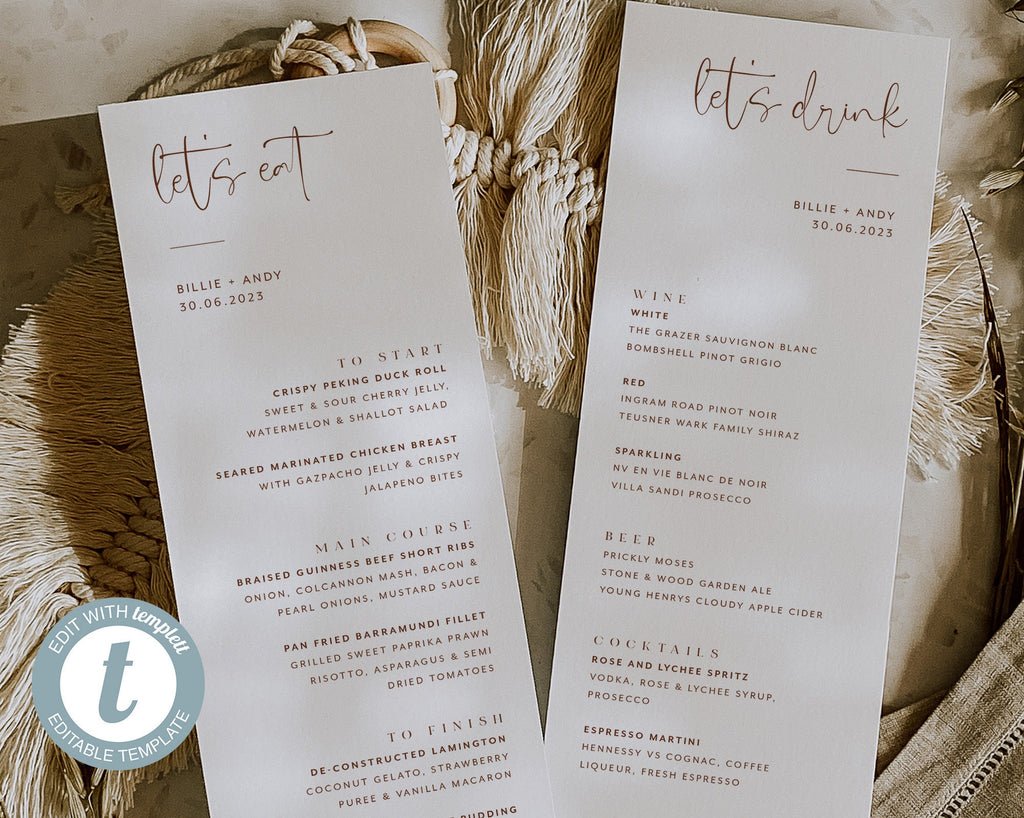 let's eat
BILLIE + ANDY
30.06.2023
TO START
CRISPY PEKING DUCK ROLL
SWEET & SOUR CHERRY JELLY,
WATERMELON & SHALLOT SALAD
SEARED MARINATED CHICKEN BREAST
WITH GAZPACHO JELLY & CRISPY
JALAPENO BITES
MAIN COURSE
BRAISED GUINNESS BEEF SHORT RIBS
ONION, COLCANNON MASH, BACON &
PEARL ONIONS, MUSTARD SAUCE
PAN FRIED BARRAMUNDI FILLET
GRILLED SWEET PAPRIKA PRAWN
RISOTTO, ASPARAGUS & SEMI
DRIED TOMATOES
TO FINISH
DE-CONSTRUCTED LAMINGTON
COCONUT GELATO, STRAWBERRY
PUREE & VANILLA MACARON
PUDDING
let's drink
BILLIE + ANDY
30.06.2023
WINE
WHITE
THE GRAZER SAUVIGNON BLANC
BOMBSHELL PINOT GRIGIO
RED
INGRAM ROAD PINOT NOIR
TEUSNER WARK FAMILY SHIRAZ
SPARKLING
NV EN VIE BLANC DE NOIR
VILLA SANDI PROSECCO
BEER
PRICKLY MOSES
STONE & WOOD GARDEN ALE
YOUNG HENRYS CLOUDY APPLE CIDER
COCKTAILS
ROSE AND LYCHEE SPRITZ
VODKA, ROSE & LYCHEE SYRUP,
PROSECCO
ESPRESSO MARTINI
HENNESSY VS COGNAC, COFFEE
LIQUEUR, FRESH ESPRESSO
EDIT WITH templett
t
EDITABLE TEMPLATE